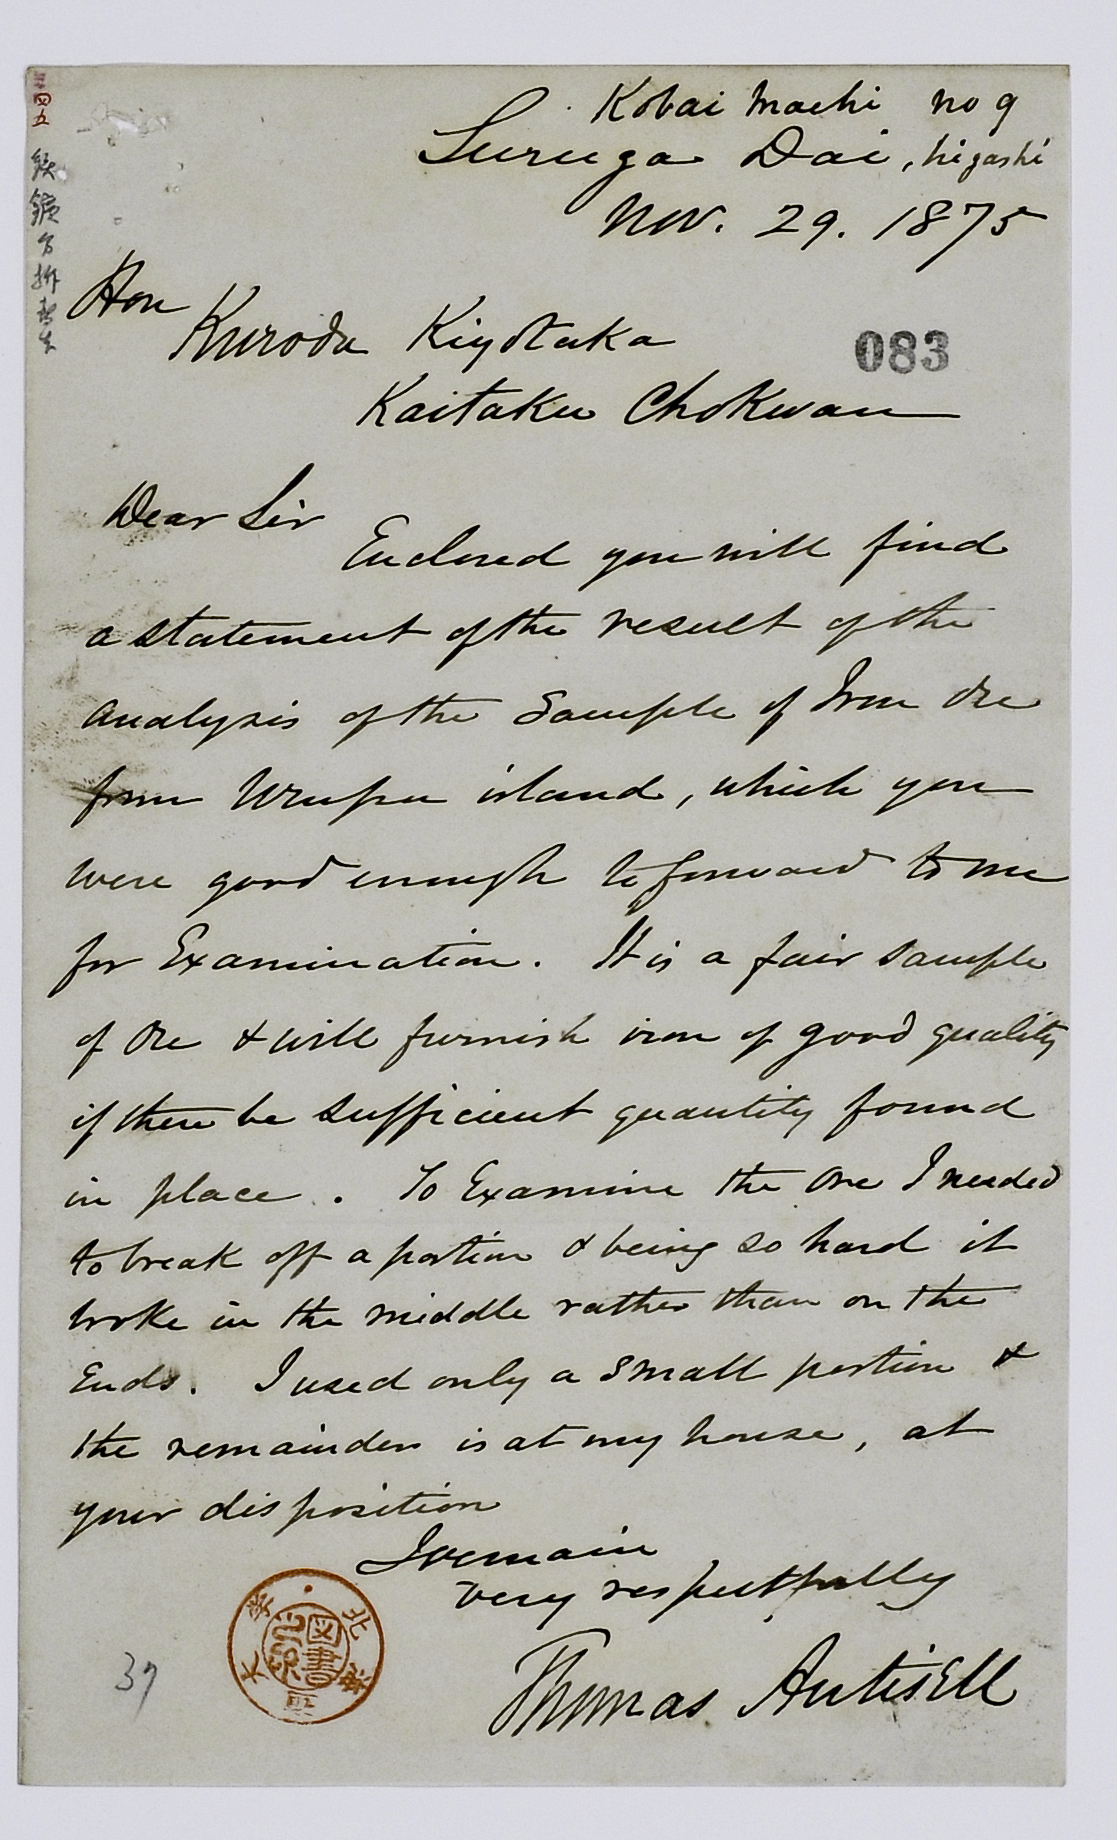 Kobai Machi no 9
Suruga Dai, higashi
Nov. 29. 1875
Hon
Kuroda Kiyotaka
083
Kaitaku Chokwan
Dear Sir
Enclosed you will find
a statement of the result of the
analysis of the Sample of Iron Ore
from Urupu island, which you
were good enough to forward to me
for Examination. It is a fair sample
of Ore & will furnish iron of good quality
if there be sufficient quantity found
in place. To Examine the Ore I needed
to break off a portion & being so hard it
broke in the middle rather than on the
Ends. I used only a small portion &
the remainder is at my house, at
your disposition
I remain
very respectfully
Thomas AntisEll
37
北海
大学
図書
之印
四五
鉄鑛分析